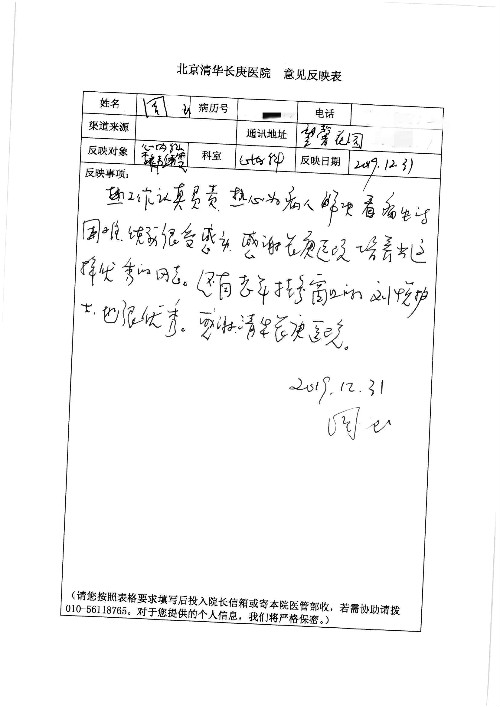 北京清华长庚医院 意见反映表
姓名 周 病历号 电话
渠道来源 通讯地址 望馨花园
反映对象 心内科 科室 心内科 反映日期 2019.12.31
反映事项:
她工作认真负责,热心为病人解决看病中的
困难,使我很受感动,感谢长庚医院培养出这
样优秀的同志。还有老年 的刘 护
士,她很优秀。感谢清华长庚医院。
2019.12.31
周
(请您按照表格要求填写后投入院长信箱或寄本院医管部收,若需协助请拨
010-56118765。对于您提供的个人信息,我们将严格保密。)